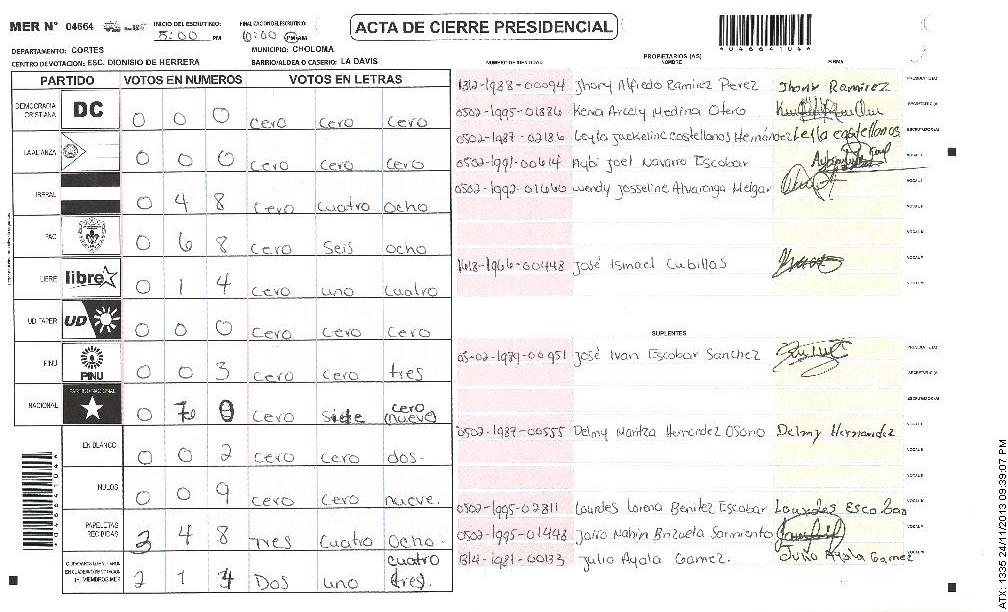 MER N° 04664
INICIO DEL ESCRUTINIO: 5:00 PM
FINALIZACION DEL ESCRUTINIO: PM
ACTA DE CIERRE PRESIDENCIAL
DEPARTAMENTO: CORTES
MUNICIPIO: CHOLOMA
CENTRO DE VOTACION: ESC. DIONISIO DE HERRERA
BARRIO/ALDEA O CASERIO: LA DAVIS
PARTIDO VOTOS EN NUMEROS VOTOS EN LETRAS
DEMOCRACIA CRISTIANA DC 0 0 0 Cero Cero Cero
LA ALIANZA 0 0 0 Cero Cero Cero
LIBERAL 0 4 8 Cero Cuatro Ocho
PAC 0 6 8 Cero Seis ocho
LIBRE libre 0 1 4 Cero uno Cuatro
UD-FAPER UD 0 0 0 Cero Cero Cero
PINU PINU 0 0 3 Cero Cero tres
NACIONAL PARTIDO NACIONAL 0 7 Cero siete cero (nueve)
EN BLANCO 0 0 2 Cero Cero dos.
NULOS 0 0 9 Cero Cero nueve.
PAPELETAS RECIBIDAS 3 4 8 Tres Cuatro Ocho.
2 1 4 Dos uno cuatro (tres)
NUMERO DE IDENTIDAD
PROPIETARIOS (AS)
NOMBRE
FIRMA
1312-1988-00094 Jhony Alfredo Ramirez Perez Jhony Ramirez
0502-1995-01886 Kena Arcely Medina Otero
0502-1987-02186 Leyla Jackeline castellanos Hernández Leyla castellanos
0502-1991-00614 Aybi Joel Navarro Escobar
0502-1992-01660 Wendy Josseline Alvarenga Melgar
1618-1966-00448 José Ismael Cubillas
SUPLENTES
05-02-1989-00951 José Ivan Escobar Sanchez
0502-1987-00555 Delmy Maritza Hernandez Osorio Delmy Hernandez
0502-1995-02811 Lourdes Lorena Benitez Escobar Lourdes Escobar
0502-1995-01448 Jairo Nahin Brizuela Sarmiento
1314-1981-00133 Julio Ayala Gamez. Julio Ayala Gamez
ATX: 1335 24/11/2013 09:39:07 PM